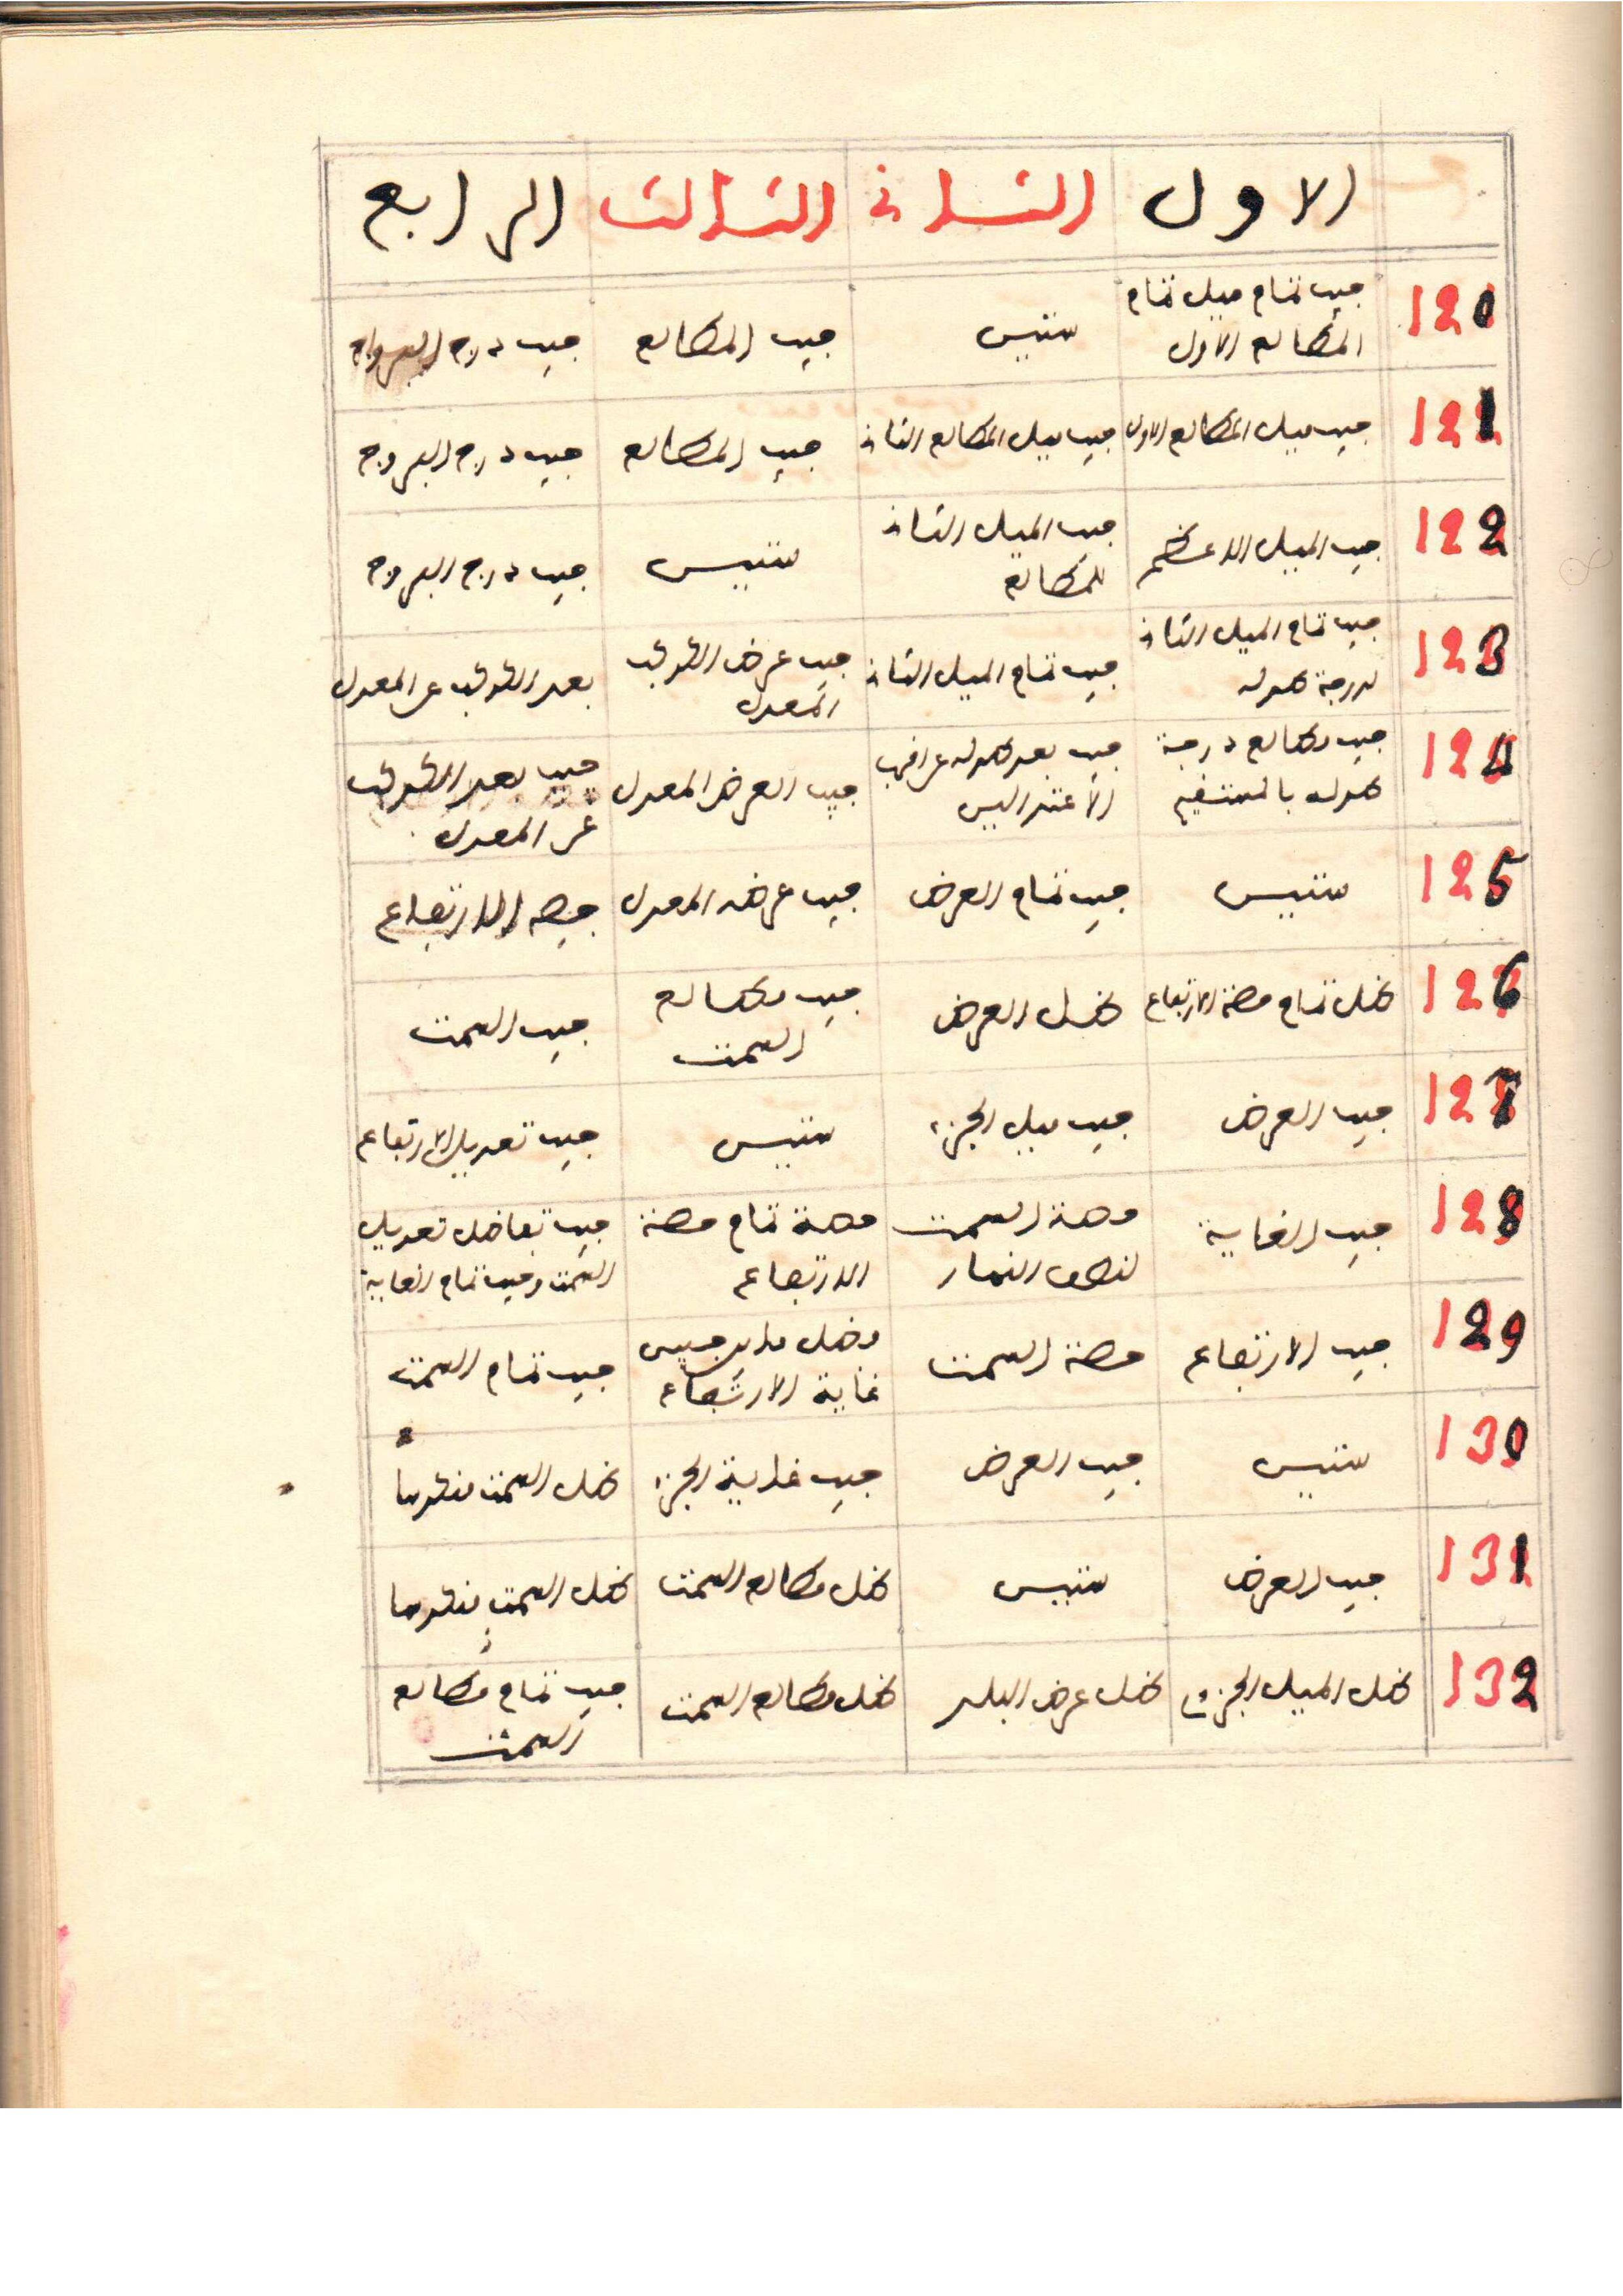 الاول الثانى الثالث الرابع
120 جيب تمام ميل تمام المطالع الاول ستيس جيب المطالع جيب درج البروج
121 جيب ميل المطالع الاول جيب ميل المطالع الثانى جيب المطالع جيب درج البروج
122 جيب الميل الاعظم جيب الميل الثانى للمطالع ستيس جيب درج البروج
123 جيب تمام الميل الثانى لدرجة طوله جيب تمام الميل الثانى جيب عرض الكوكب المعدل بعد الكوكب عن المعدل
124 جيب مطالع درجة طوله بالمستقيم جيب بعد طوله عن اقرب الاعتدالين جيب العرض المعدل جيب بعد الكوكب عن المعدل
125 ستيس جيب تمام العرض جيب عرضه المعدل حصة الارتفاع
126 ظل تمام حصة الارتفاع ظل العرض جيب مطالع السمت جيب السمت
127 جيب العرض جيب ميل الجزء ستيس جيب تعديل الارتفاع
128 جيب الغاية حصة السمت لنصف النهار حصة تمام حصة الارتفاع جيب تفاضل تعديل السمت وجيب تمام الغاية
129 جيب الارتفاع حصة السمت فضل ما بين جيبى غاية الارتفاع جيب تمام السمت
130 ستيس جيب العرض جيب غاية الجزء ظل السمت منكوسا
131 جيب العرض ستيس ظل مطالع السمت ظل السمت منكوسا
132 ظل الميل الجزءى ظل عرض البلد ظل مطالع السمت جيب تمام مطالع السمت